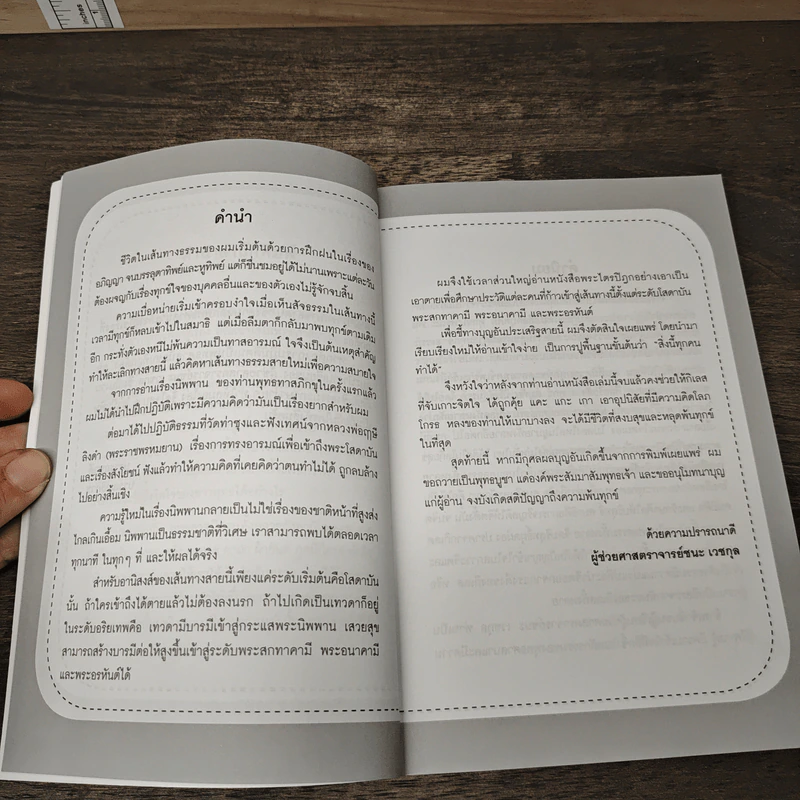 inches
1
คำนำ
ชีวิตในเส้นทางธรรมของผมเริ่มต้นด้วยการฝึกฝนในเรื่องของ
อภิญญา จนบรรลุตาทิพย์และหูทิพย์ แต่ก็ชื่นชมอยู่ได้ไม่นานเพราะแต่ละวัน
ต้องผจญกับเรื่องทุกข์ใจของบุคคลอื่นและของตัวเองไม่รู้จักจบสิ้น
ความเบื่อหน่ายเริ่มเข้าครอบงำใจเมื่อเห็นสัจธรรมในเส้นทางนี้
เวลามีทุกข์ก็หลบเข้าไปในสมาธิ แต่เมื่อลืมตาก็กลับมาพบทุกข์ตามเดิม
อีก กระทั่งตัวเองหนีไม่พ้นความเป็นทาสอารมณ์ ใจจึงเป็นต้นเหตุสำคัญ
ทำให้ละเลิกทางสายนี้ แล้วคิดหาเส้นทางธรรมสายใหม่เพื่อความสบายใจ
จากการอ่านเรื่องนิพพาน ของท่านพุทธทาสภิกขุในครั้งแรกแล้ว
ผมไม่ได้นำไปฝึกปฏิบัติเพราะมีความคิดว่ามันเป็นเรื่องยากสำหรับผม
ต่อมาได้ไปปฏิบัติธรรมที่วัดท่าซุงและฟังเทศน์จากหลวงพ่อฤๅษี
ลิงดำ (พระราชพรหมยาน) เรื่องการทรงอารมณ์เพื่อเข้าถึงพระโสดาบัน
และเรื่องสังโยชน์ ฟังแล้วทำให้ความคิดที่เคยคิดว่าตนทำไม่ได้ ถูกลบล้าง
ไปอย่างสิ้นเชิง
ความรู้ใหม่ในเรื่องนิพพานกลายเป็นไม่ใช่เรื่องของชาติหน้าที่สูงส่ง
ไกลเกินเอื้อม นิพพานเป็นธรรมชาติที่วิเศษ เราสามารถพบได้ตลอดเวลา
ทุกนาที ในทุกๆ ที่ และให้ผลได้จริง
สำหรับอานิสงส์ของเส้นทางสายนี้เพียงแค่ระดับเริ่มต้นคือโสดาบัน
นั้น ถ้าใครเข้าถึงได้ตายแล้วไม่ต้องลงนรก ถ้าไปเกิดเป็นเทวดาก็อยู่
ในระดับอริยเทพคือ เทวดามีบารมีเข้าสู่กระแสพระนิพพาน เสวยสุข
สามารถสร้างบารมีต่อให้สูงขึ้นเข้าสู่ระดับพระสกทาคามี พระอนาคามี
และพระอรหันต์ได้
ผมจึงใช้เวลาส่วนใหญ่อ่านหนังสือพระไตรปิฎกอย่างเอาเป็น
เอาตายเพื่อศึกษาประวัติแต่ละคนที่ก้าวเข้าสู่เส้นทางนี้ตั้งแต่ระดับโสดาบัน
พระสกทาคามี พระอนาคามี และพระอรหันต์
เพื่อชี้ทางบุญอันประเสริฐสายนี้ ผมจึงตัดสินใจเผยแพร่ โดยนำมา
เรียบเรียงใหม่ให้อ่านเข้าใจง่าย เป็นการปูพื้นฐานขั้นต้นว่า “สิ่งนี้ทุกคน
ทำได้”
จึงหวังใจว่าหลังจากท่านอ่านหนังสือเล่มนี้จบแล้วคงช่วยให้กิเลส
ที่จับเกาะจิตใจ ได้ถูกคุ้ย แคะ แกะ เกา เอาอุปนิสัยที่มีความคิดโลภ
โกรธ หลงของท่านให้เบาบางลง จะได้มีชีวิตที่สงบสุขและหลุดพ้นทุกข์
ในที่สุด
สุดท้ายนี้ หากมีกุศลผลบุญอันเกิดขึ้นจากการพิมพ์เผยแพร่ ผม
ขอถวายเป็นพุทธบูชา แด่องค์พระสัมมาสัมพุทธเจ้า และขออนุโมทนาบุญ
แก่ผู้อ่าน จงบังเกิดสติปัญญาถึงความพ้นทุกข์
ด้วยความปรารถนาดี
ผู้ช่วยศาสตราจารย์ชนะ เวชกุล